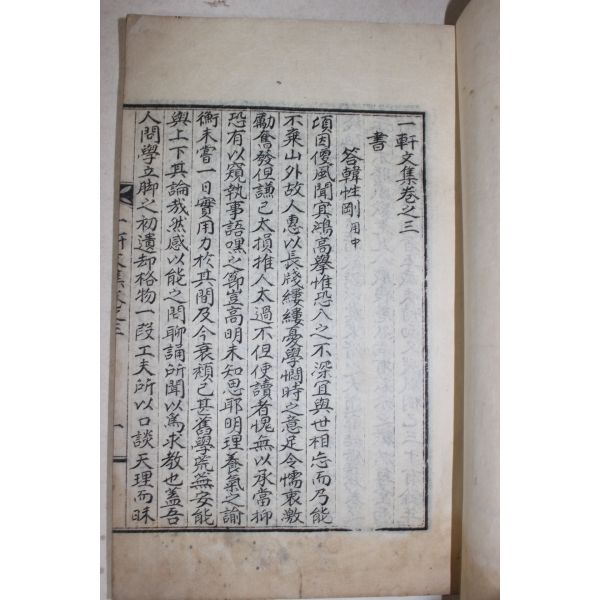 一軒文集卷之三
書
答韓性剛用中
頃因便風聞冥鴻高擧惟恐入之不深宜與世相忘而乃能
不棄山外故人惠以長牋縷縷憂學憫時之意足令懦衷激
勵奮發但謙己太損推人太過不但使讀者愧無以承當抑
恐有以窺執事語嘿之節豈高明未知思耶明理養氣之諭
衡未嘗一日實用力於其間及今衰頹已甚舊學荒蕪安能
與上下其論哉然感以能之問聊誦所聞以爲求敎也盖吾
人問學立脚之初遺却格物一段工夫所以口談天理而昧
一軒文集卷之三
一